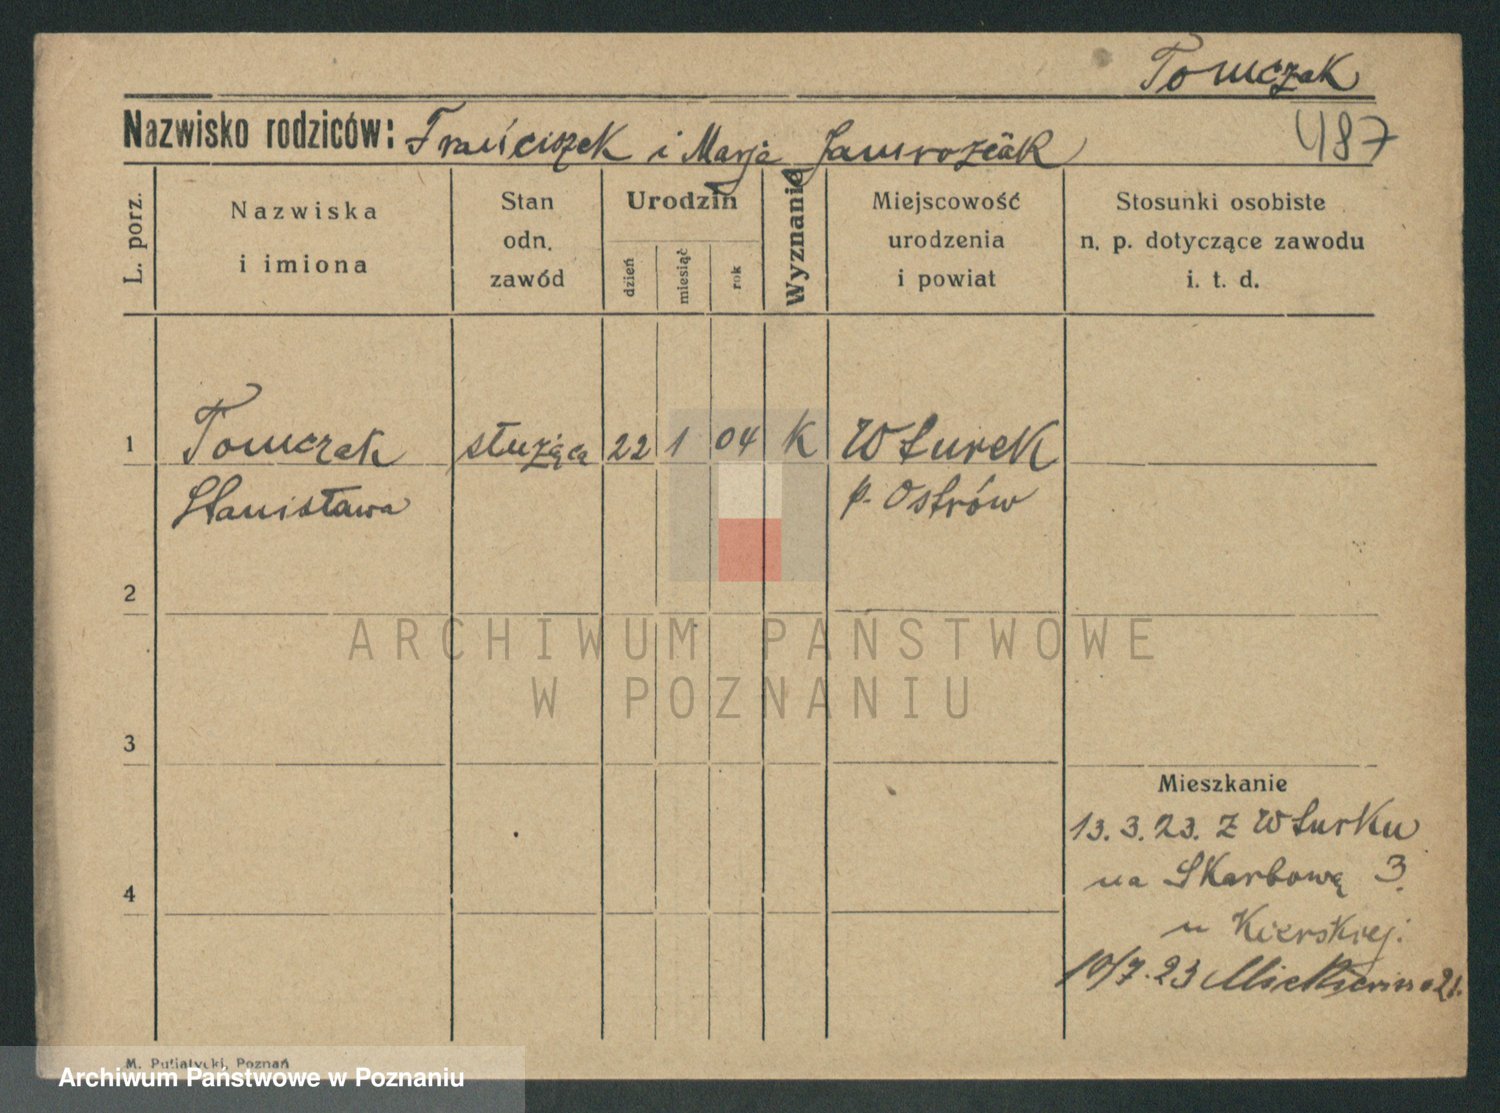 Tomczak
Nazwisko rodziców: Franciszek i Marja Jamrozčak
487
L. porz.
Nazwiska
i imiona
Stan
odn.
zawód
Urodzin
dzień
miesiąc
rok
Wyznanie
Miejscowość
urodzenia
i powiat
Stosunki osobiste
n. p. dotyczące zawodu
i. t. d.
1 Tomczak służąca 22 1 04 K Wturek
Stanisława p. Ostrów
2
ARCHIWUM PAŃSTWOWE
W POZNANIU
3
Mieszkanie
13. 3. 23. z Wturku
na Skarbową 3.
u Kierskiej.
4
10/7. 23 Mickiewicza 21.
M. Putiatycki, Poznań
Archiwum Państwowe w Poznaniu